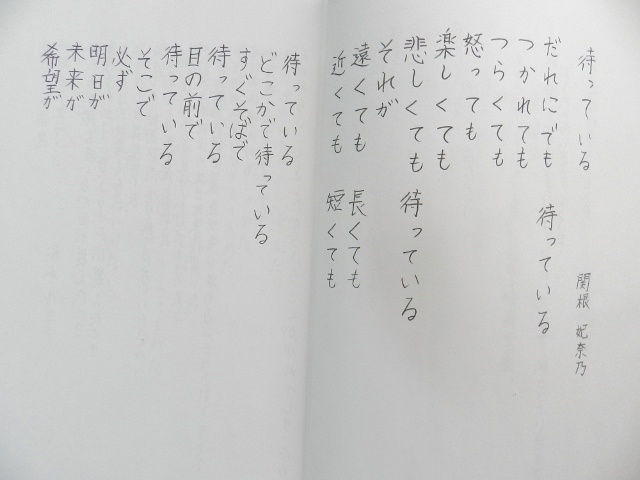 待っている
関根 妃奈乃
だれにでも 待っている
つかれても
つらくても
怒っても
楽しくても
悲しくても 待っている
それが
遠くても 長くても
近くても 短くても
待っている
どこかで待っている
すぐそばで
待っている
目の前で
待っている
そこで
必ず
明日が
未来が
希望が